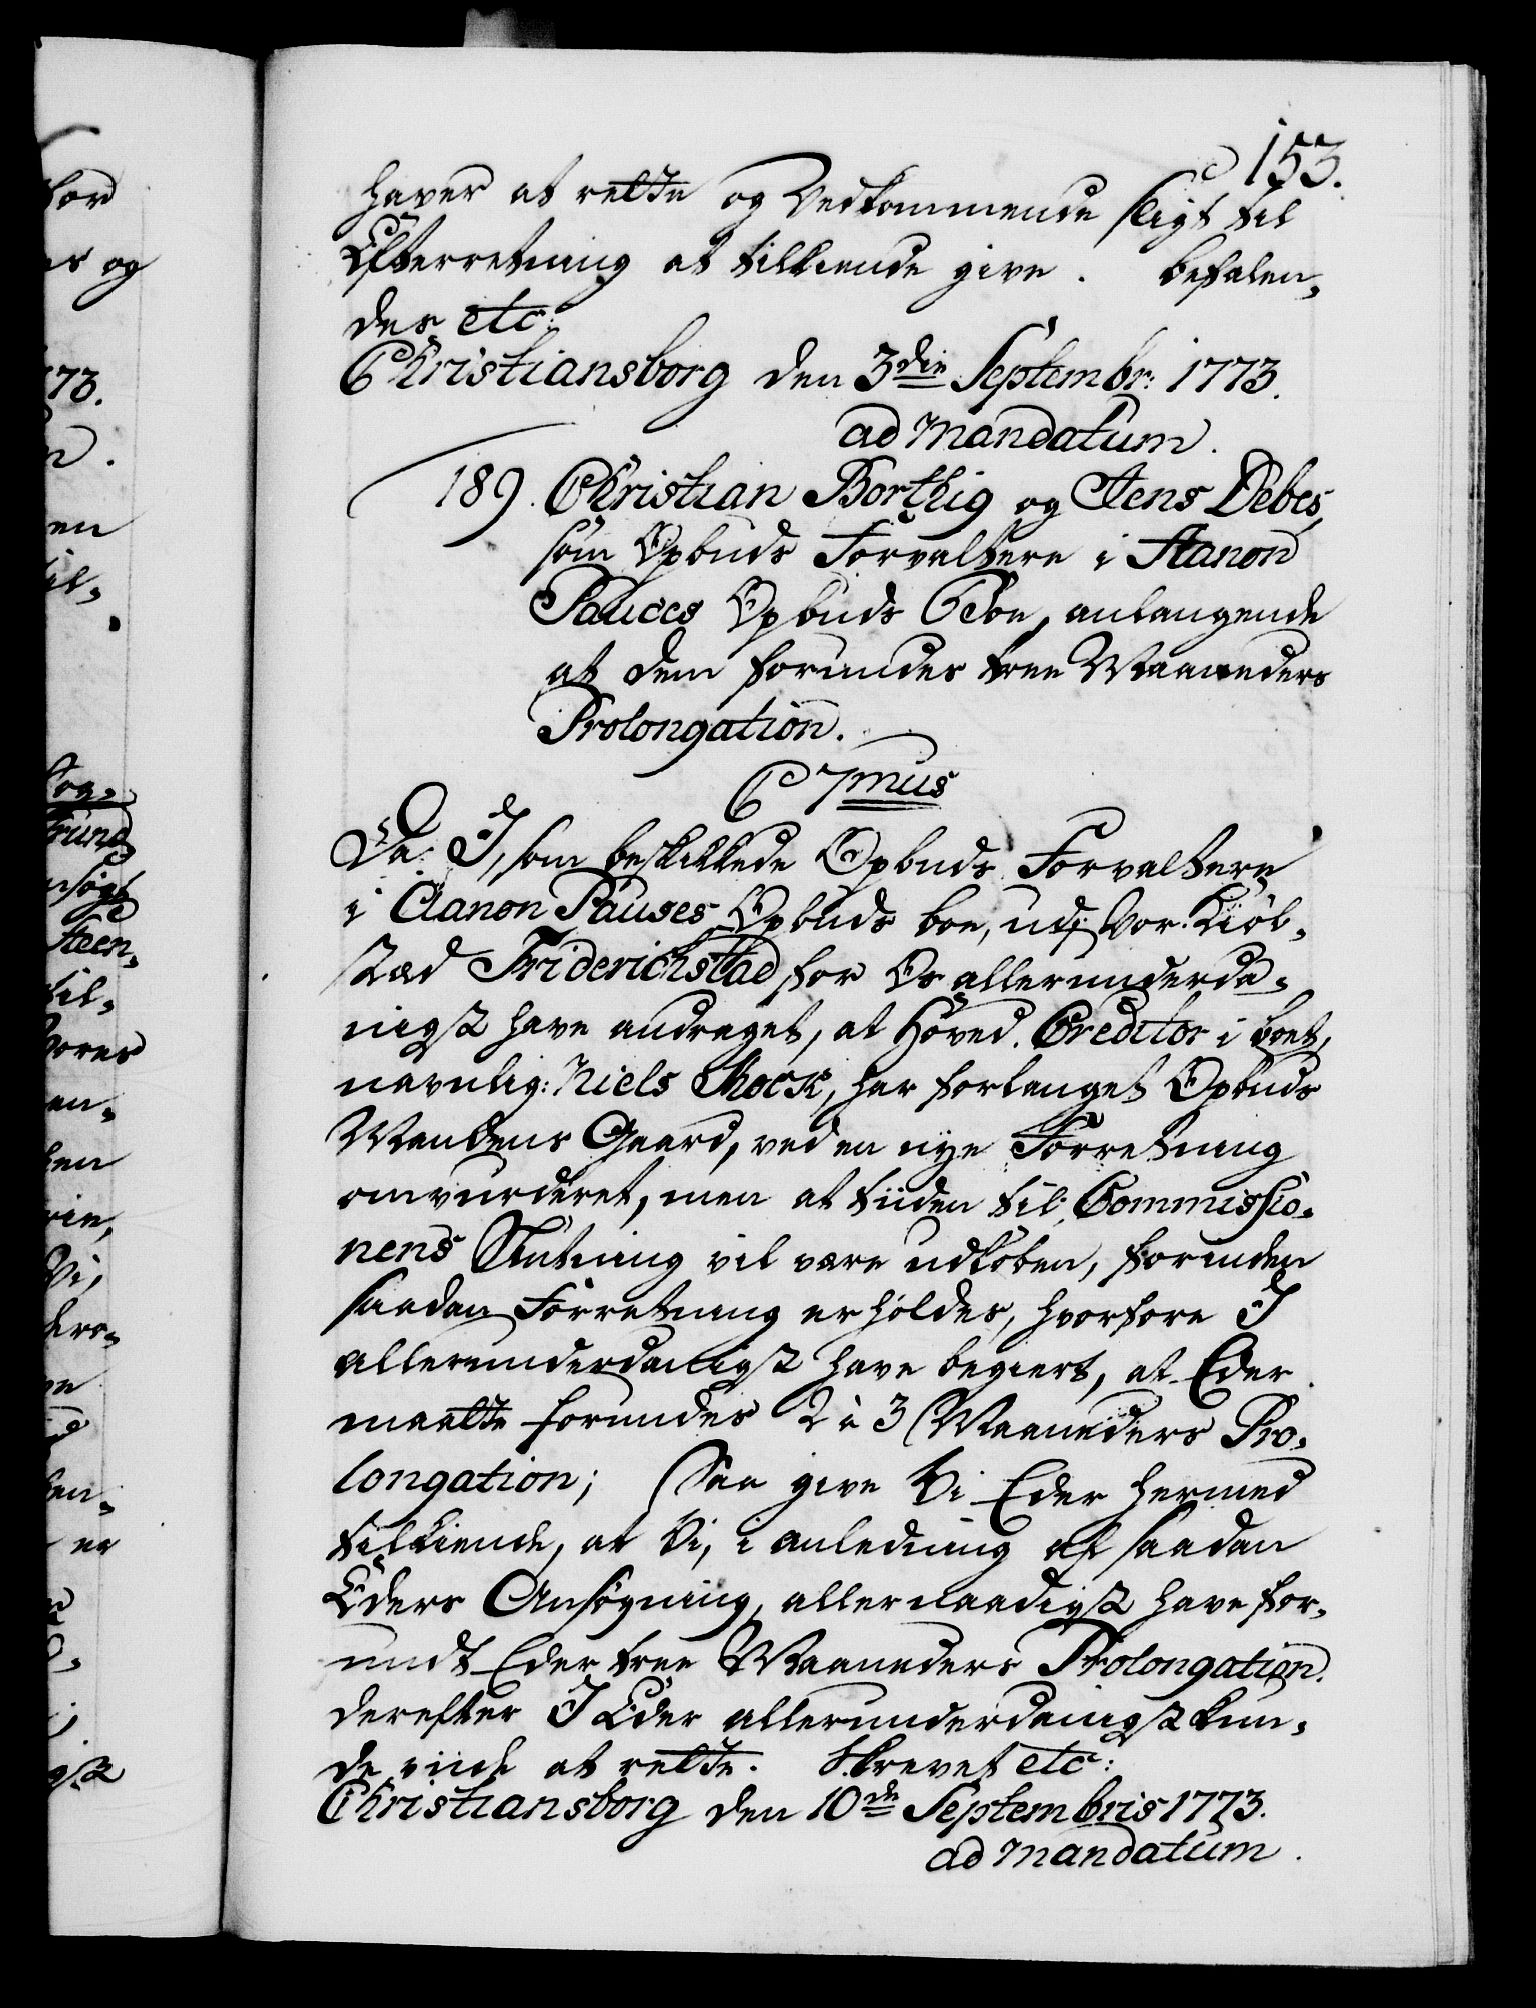 153.
haver at rette og Vedkommende sligt til
Efterretning at tilkiende give. Befalen-
des etc:
Christiansborg den 3die Septembr: 1773.
ad Mandatum.
189. Christian Borthig og Jens Debes,
som Opbuds Forvaltere i Aanon
Pauces Opbuds Boe, anlangende
at dem forundes tree Maaneders
Prolongation.
C 7mus
Da I, som beskikkede Opbuds Forvaltere
i Aanon Pauses Opbuds boe, udj Vor Kiøb-
stæd Friderichstad for Os allerunderda-
nigst have andraget, at Hoved Creditor i boet,
navnlig: Niels Mock, har forlanget Opbuds
Mandens Gaard, ved en nye Forretning
omvurderet, men at tiiden til Commissio-
nens Slutning vil være udløben, forinden
saadan Forretning erholdes, hvorfore I
allerunderdanigst have begiert, at Eder
maatte forundes 2 à 3 Maaneders Pro-
longation; Saa give Vi Eder hermed
tilkiende, at Vi, i anledning af saadan
Eders Ansøgning, allernaadigst have for-
undt Eder tree Maaneders Prolongation.
derefter I Eder allerunderdanigst kun-
de viide at rette. Skrevet etc:
Christiansborg den 10de Septembris 1773.
ad Mandatum.